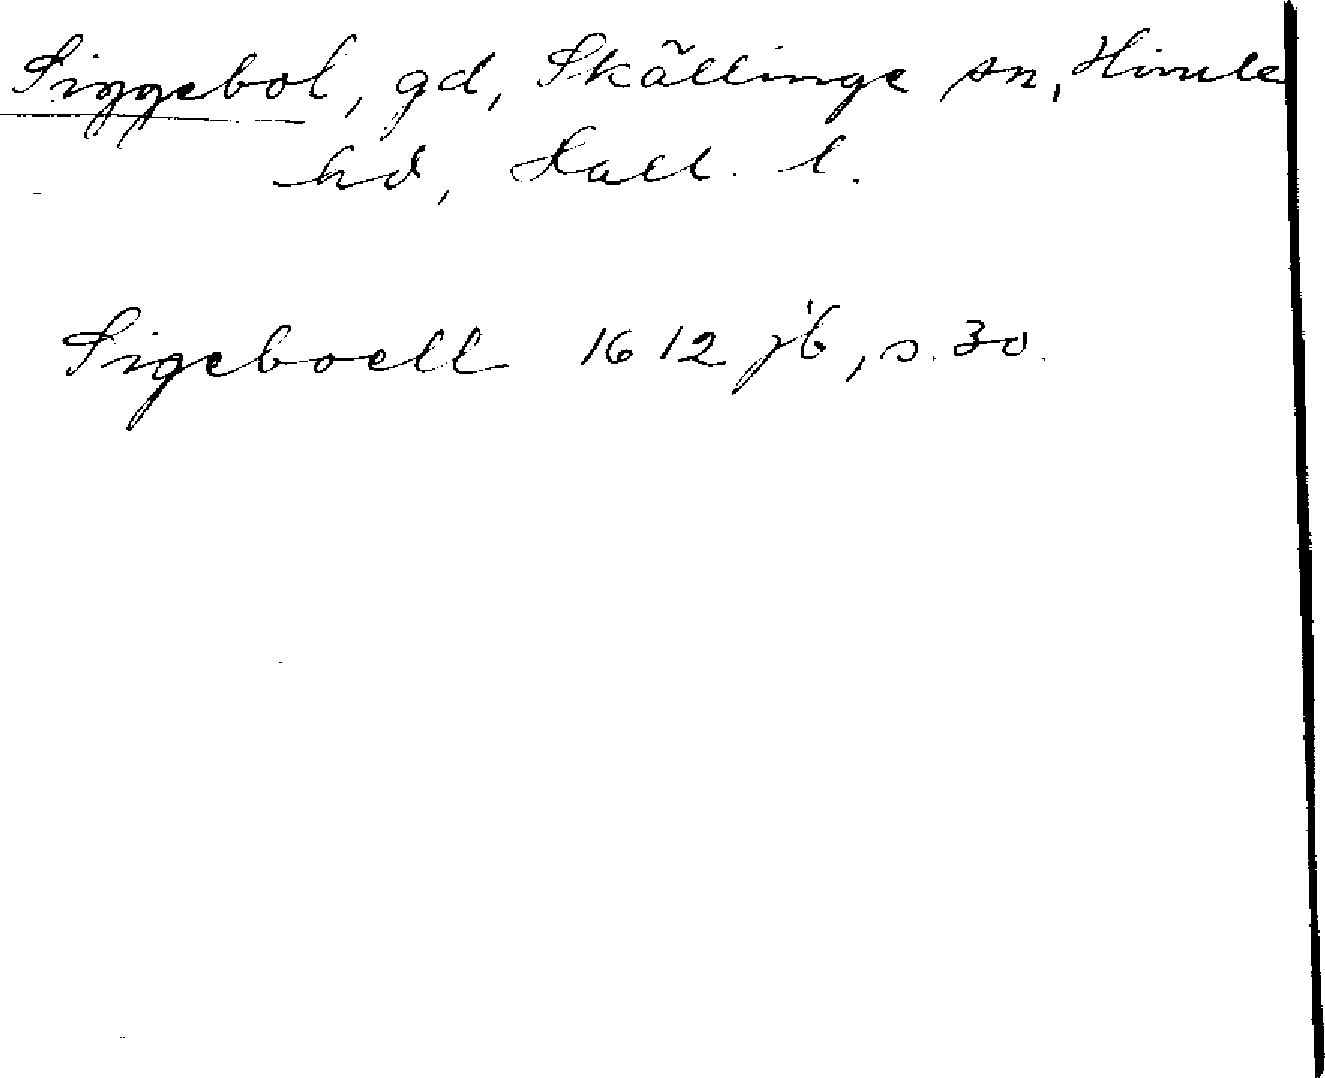 Siggebol, gd, Skällinge sn, Himle
hd, Hall. l.
Sigeboell 1612 jb, s. 30.